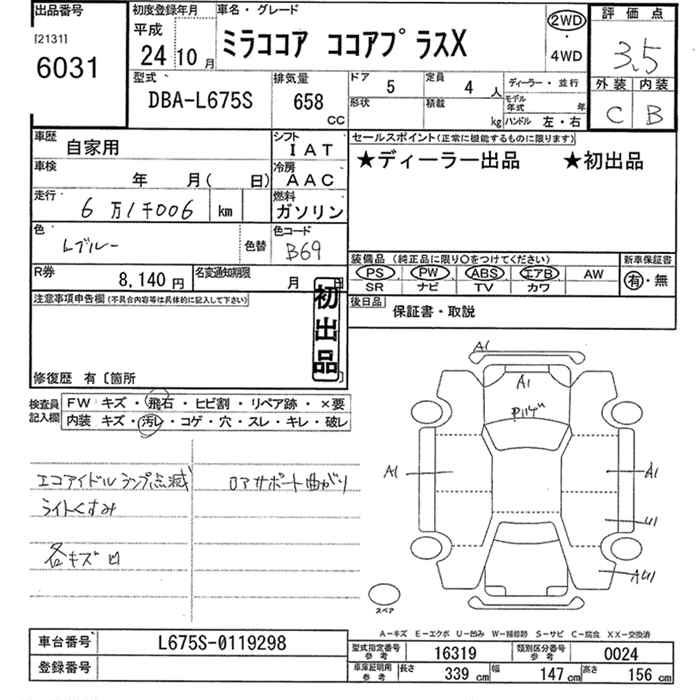 出品番号
[2131]
6031
初度登録年月
平成
24 10 月
車名・グレード
ミラココア ココアプラスX
2WD
・
4WD
評価点
3.5
外装 内装
C B
型式
DBA-L675S
排気量
658
CC
ドア
5
定員
4 人
形状
積載
kg
ディーラー・並行
モデル年式 年
ハンドル 左・右
車歴
自家用
シフト
IAT
車検
年 月( 日)
冷房
AAC
走行
6万1千006 km
燃料
ガソリン
色
Lブルー
色替
色コード
B69
R券
8,140 円
名変通知期限
月 日
セールスポイント(正常に機能するものに限ります)
★ディーラー出品 ★初出品
装備品 (純正品に限り○をつけてください)
PS PW ABS エアB AW
SR ナビ TV カワ
新車保証書
有・無
後日品
保証書・取説
注意事項申告欄(不具合内容等は具体的に記入して下さい)
初出品
修復歴 有〔箇所
検査員記入欄
FW キズ・飛石・ヒビ割・リペア跡・×要
内装 キズ・汚レ・コゲ・穴・スレ・キレ・破レ
エコアイドルランプ点滅
ライトくすみ
各キズ凹
ロアサポート曲がり
A1
A1
A1
A1
U1
スペア
A-キズ E-エクボ U-凹み W-補修跡 S-サビ C-腐食 XX-交換済
車台番号
L675S-0119298
登録番号
型式指定番号 参考
16319
類別区分番号 参考
0024
車庫証明用 参考
長さ 339 cm
幅 147 cm
高さ 156 cm